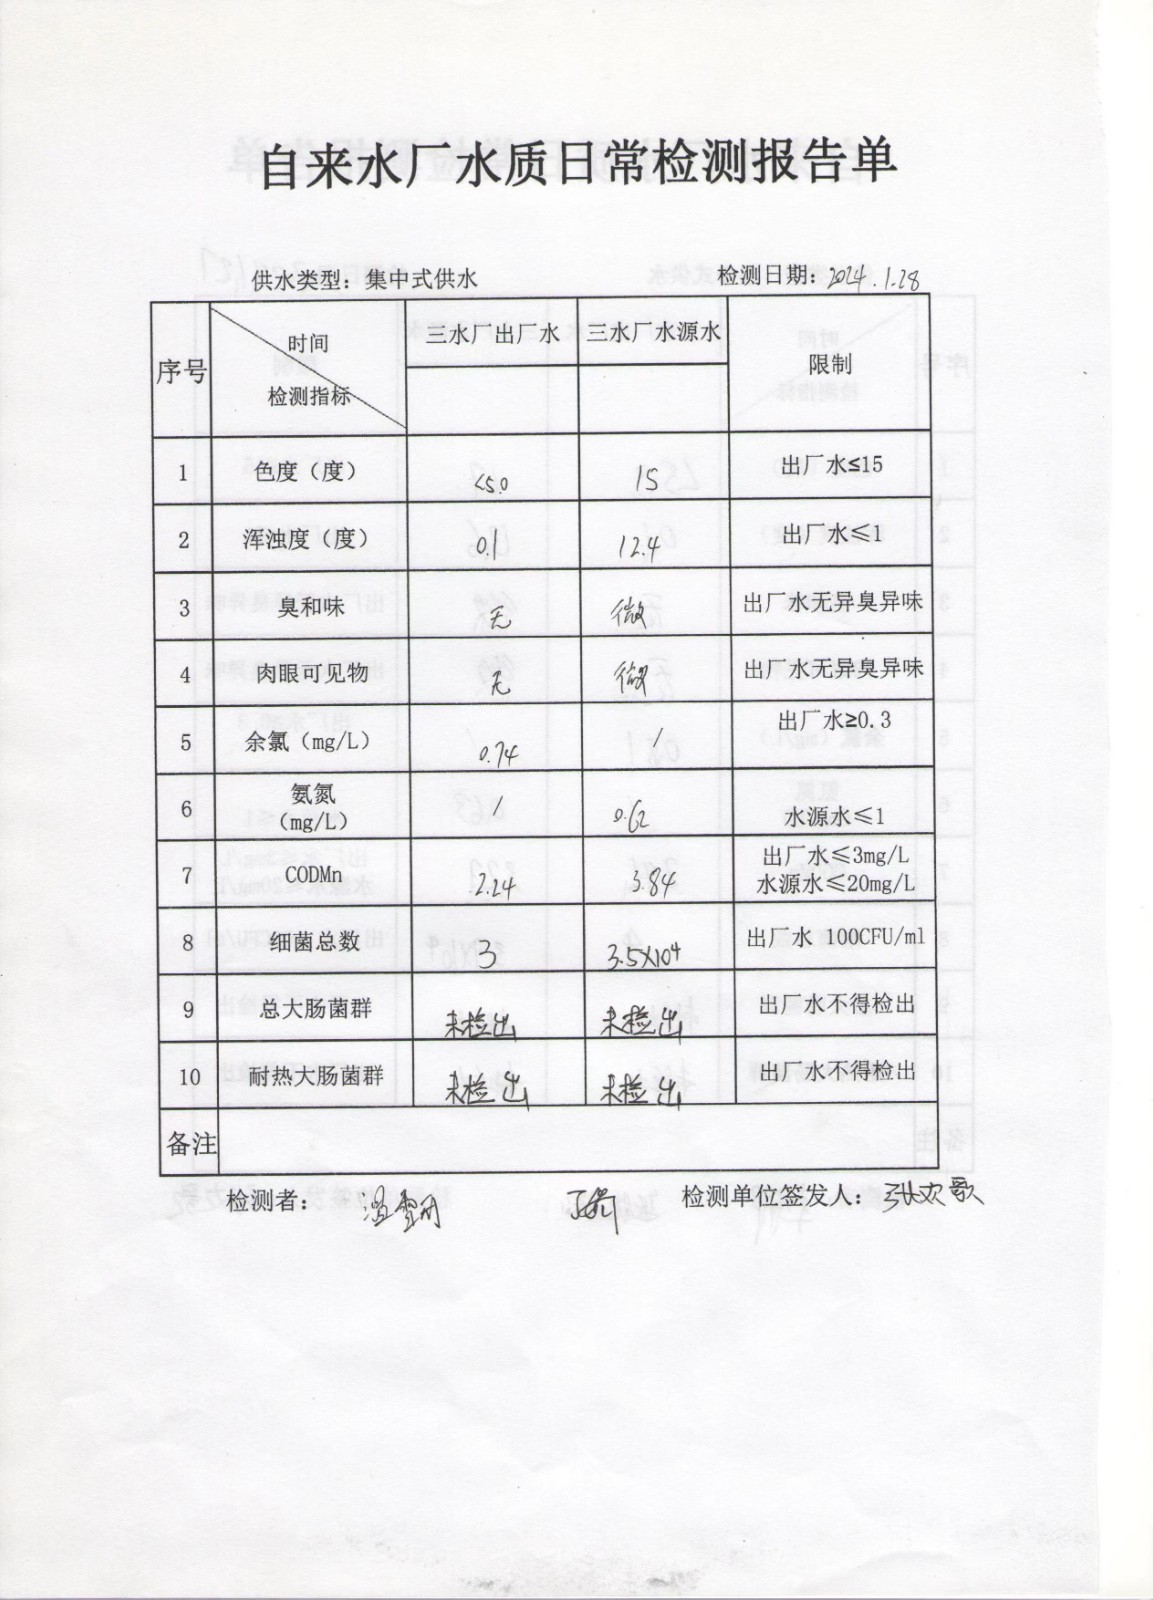 自来水厂水质日常检测报告单
供水类型：集中式供水 检测日期：2024.1.28
序号 时间 检测指标 三水厂出厂水 三水厂水源水 限制
1 色度（度） <5.0 15 出厂水≤15
2 浑浊度（度） 0.1 12.4 出厂水≤1
3 臭和味 无 微 出厂水无异臭异味
4 肉眼可见物 无 微 出厂水无异臭异味
5 余氯（mg/L） 0.74 / 出厂水≥0.3
6 氨氮（mg/L） / 0.62 水源水≤1
7 CODMn 2.24 3.84 出厂水≤3mg/L
水源水≤20mg/L
8 细菌总数 3 3.5X10⁴ 出厂水 100CFU/ml
9 总大肠菌群 未检出 未检出 出厂水不得检出
10 耐热大肠菌群 未检出 未检出 出厂水不得检出
备注
检测者： 检测单位签发人：张欢歌